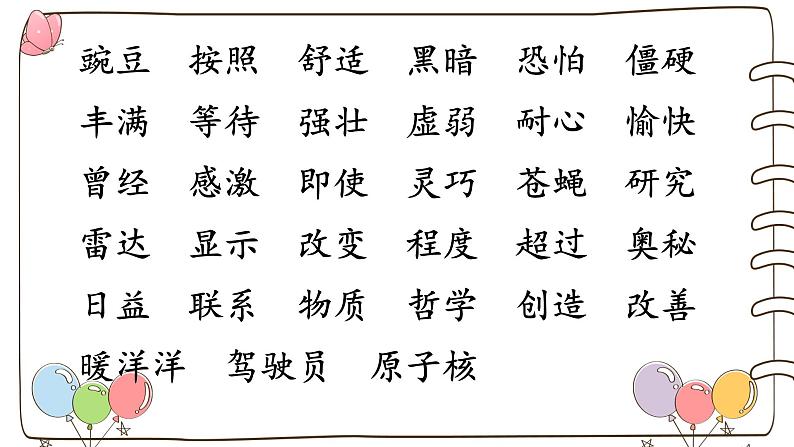 豌豆 按照 舒适 黑暗 恐怕 僵硬
丰满 等待 强壮 虚弱 耐心 愉快
曾经 感激 即使 灵巧 苍蝇 研究
雷达 显示 改变 程度 超过 奥秘
日益 联系 物质 哲学 创造 改善
暖洋洋 驾驶员 原子核